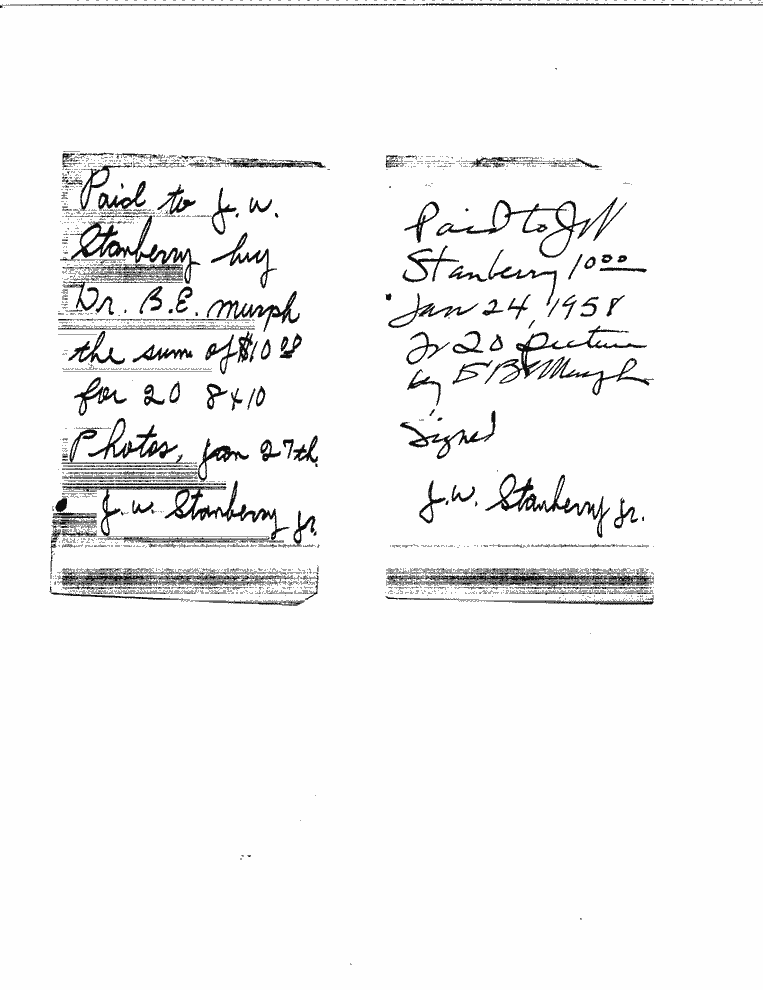 Paid to J. W.
Stanberry by
Dr. B.E. Murph
the sum of $10.00
for 20 8x10
Photos, Jan 27th
J. W. Stanberry Jr.
Paid to J W
Stanberry 10.00
Jan 24, 1958
for 20 picture
by B Murph
Signed
J. W. Stanberry Jr.